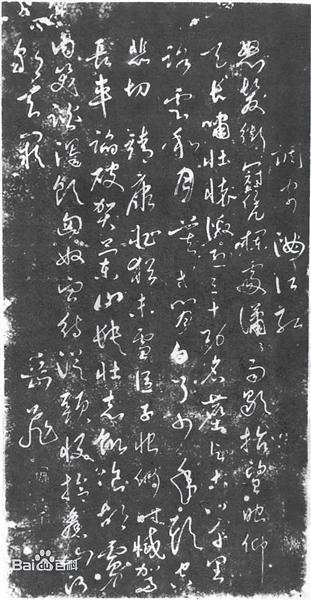 調寄滿江紅
怒髮衝冠憑欄處瀟〻雨歇抬望眼仰
天長嘯壯懷激烈三十功名塵与土八千里
路雲和月莫等閒白了少年頭空
悲切靖康恥猶未雪臣子恨何時滅駕
長車踏破賀蘭山缺壯志飢餐胡虜
肉笑談渴飲匈奴血待從頭收拾舊山河
朝天闕
岳飛
Bai百科